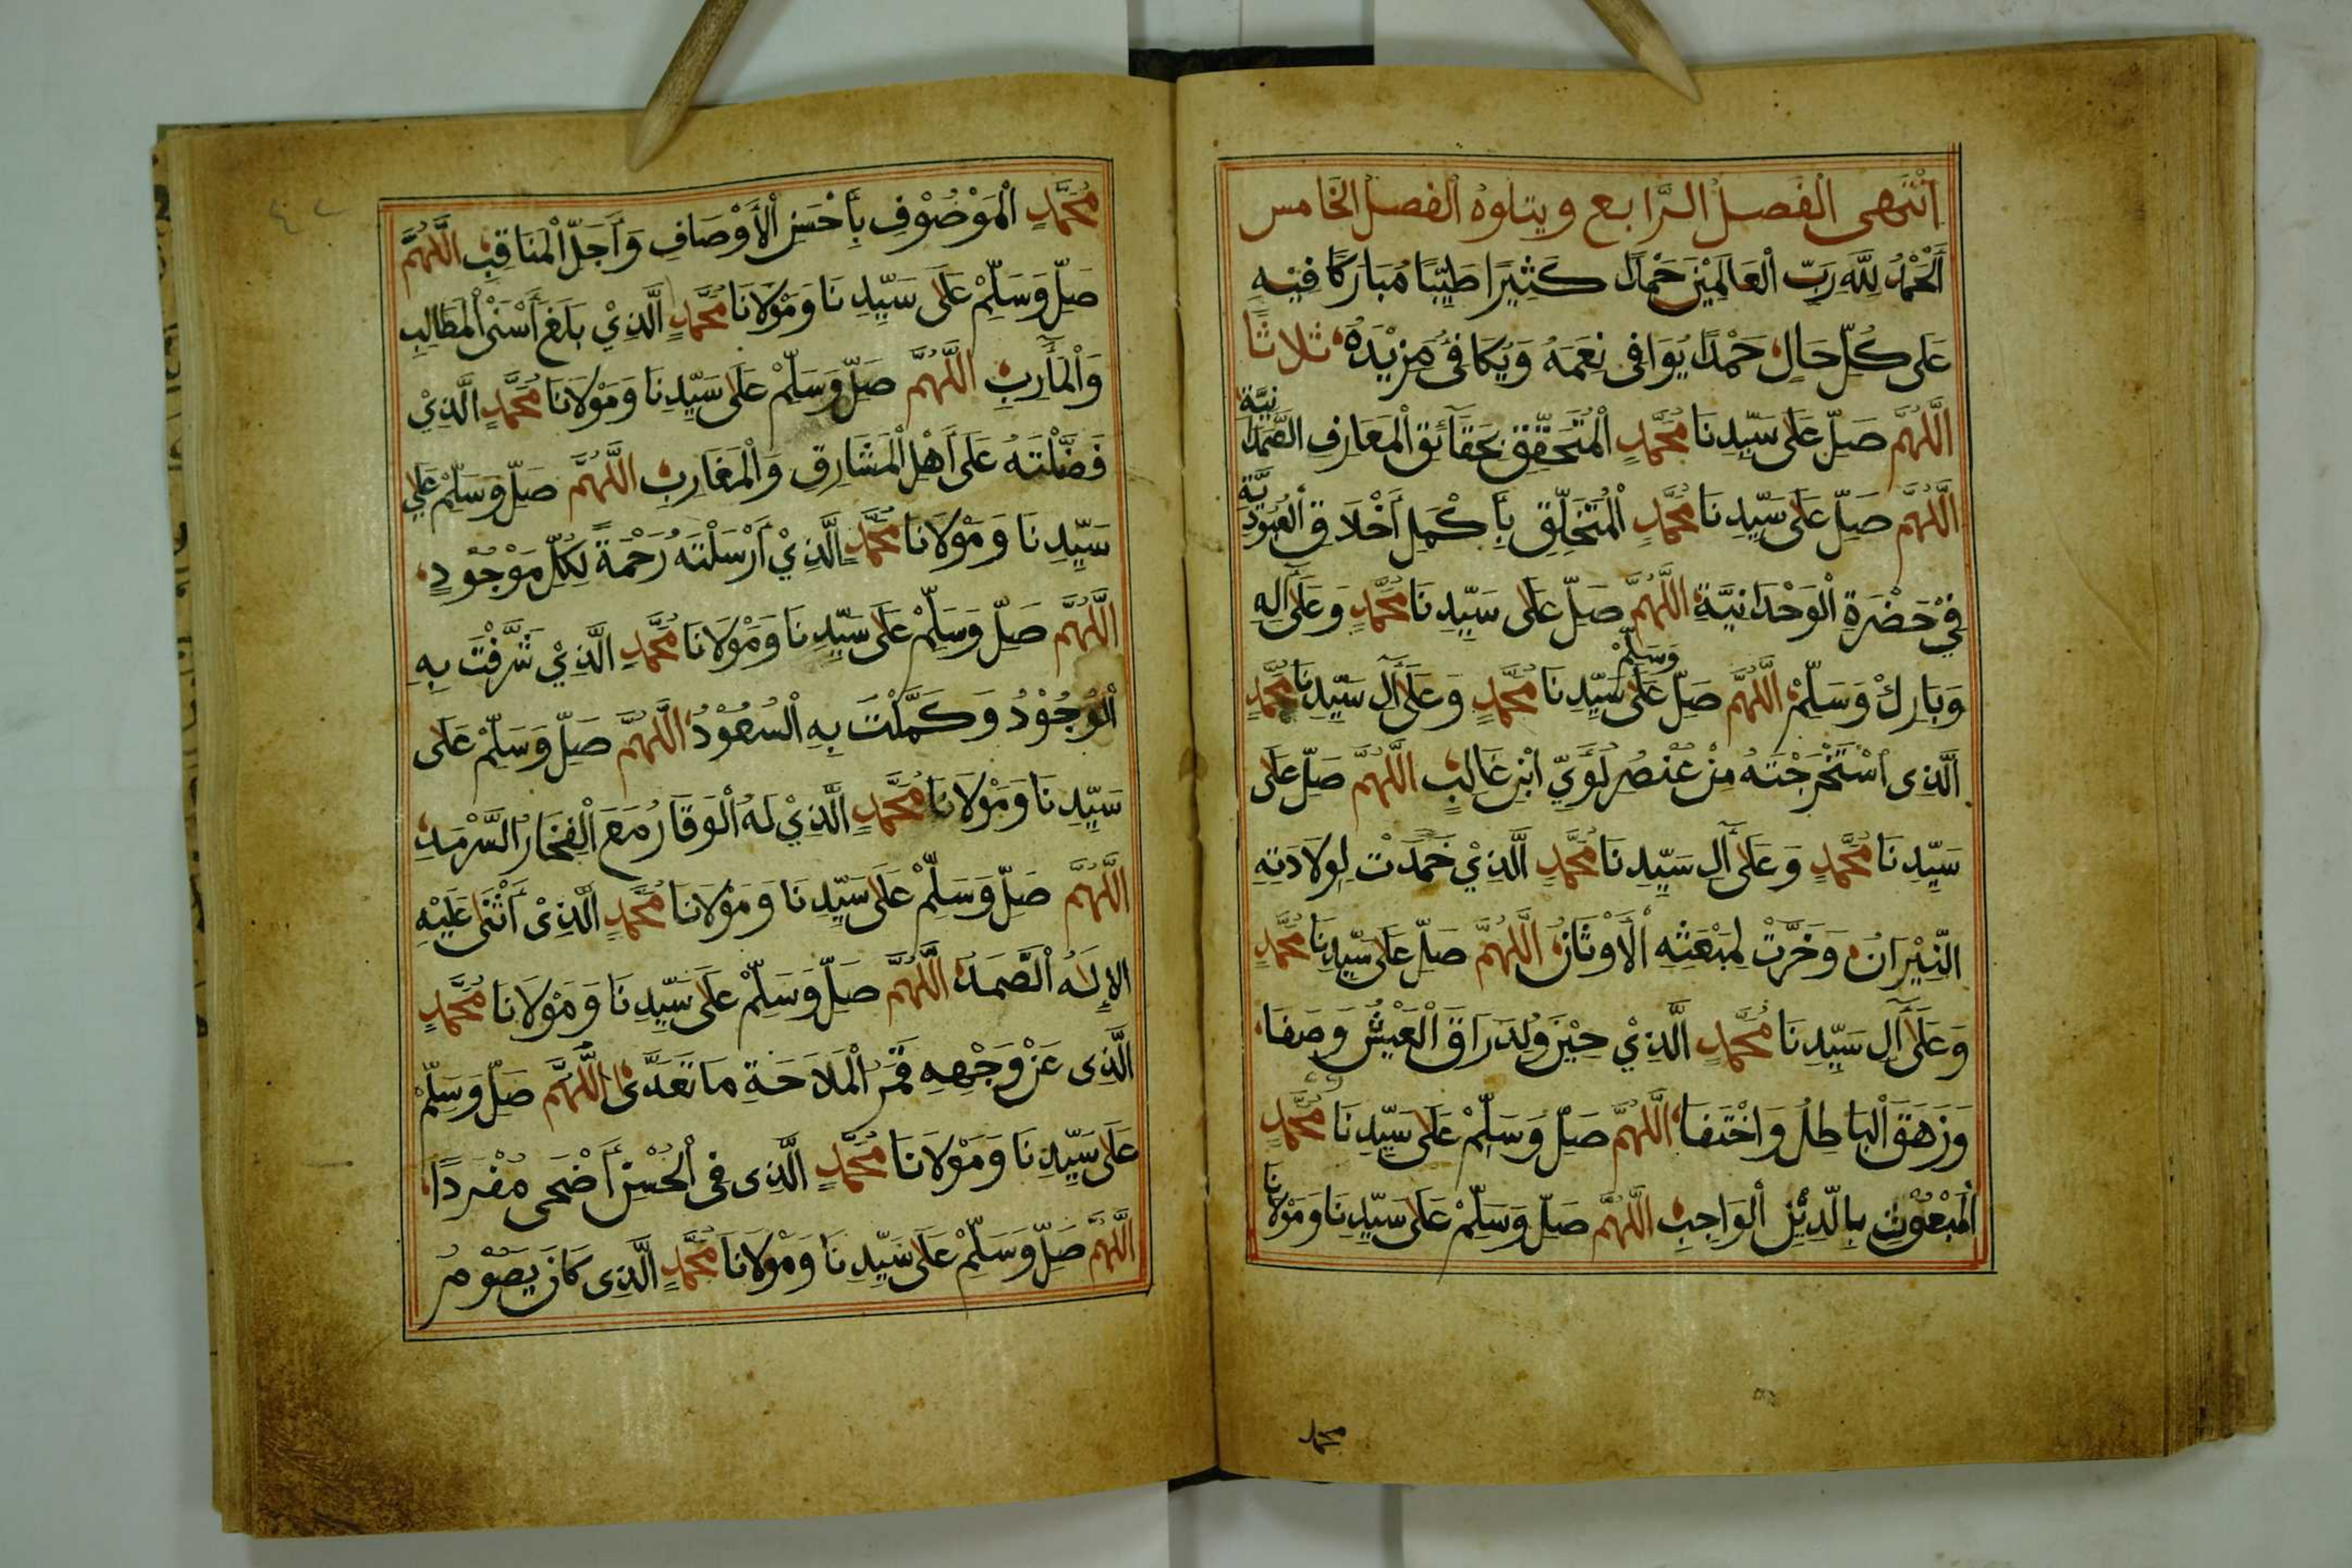 اِنْتَهى الفَصلُ الرَّابع ويتلوهُ الفصلُ الخَامس
اَلْحَمْدُ لِلّٰهِ رَبِّ الْعَالَمِيْنَ حَمْدًا كَثِيْرًا طَيِّبًا مُبَارَكًا فِيْهِ
عَلى كُلِّ حَالٍ حَمْدًا يُوَافى نِعَمَهُ وَيُكَافئُ مَزِيْدَهُ ثلاثًا
اَللّٰهُمَّ صَلِّ عَلى سَيِّدِنَا مُحَمَّدٍ الْمُتَحَقِّقِ بِحَقَآئِقِ الْمَعَارِفِ الصَّمَدَانِيَّة
اَللّٰهُمَّ صَلِّ عَلى سَيِّدِنَا مُحَمَّدٍ الْمُتَخَلِّقِ بِأَكْمَلِ أَخْلَاقِ الْعُبُودِيَّة
فِيْ حَضْرَةِ الْوَحْدَانِيَّة اَللّٰهُمَّ صَلِّ عَلى سَيِّدِنَا مُحَمَّدٍ وَعَلى آلِهِ
وَبَارِكْ وَسَلِّمْ اَللّٰهُمَّ صَلِّ وَسَلِّمْ عَلى سَيِّدِنَا مُحَمَّدٍ وَعَلى آلِ سَيِّدِنَا مُحَمَّدٍ
اَلَّذِى اسْتَخْرَجْتَهُ مِنْ عُنْصُرِ لُؤَيِّ ابْنِ غَالِبٍ اَللّٰهُمَّ صَلِّ عَلى
سَيِّدِنَا مُحَمَّدٍ وَعَلى آلِ سَيِّدِنَا مُحَمَّدٍ اَلَّذِيْ خَمَدَتْ لِوِلَادَتِهِ
النِّيْرَانُ وَخَرَّتْ لِمَبْعَثِهِ الْأَوْثَانُ اَللّٰهُمَّ صَلِّ عَلى سَيِّدِنَا مُحَمَّدٍ
وَعَلى آلِ سَيِّدِنَا مُحَمَّدٍ الَّذِيْ حِيْنَ وُلِدَ رَاقَ الْعَيْشُ وَصَفَا
وَزَهَقَ الْبَاطِلُ وَاخْتَفَا اَللّٰهُمَّ صَلِّ وَسَلِّمْ عَلى سَيِّدِنَا مُحَمَّدٍ
الْمَبْعُوْثِ بِالدِّيْنِ الْوَاجِبِ اَللّٰهُمَّ صَلِّ وَسَلِّمْ عَلى سَيِّدِنَا وَمَوْلَانَا
محمد
مُحَمَّدٍ الْمَوْصُوْفِ بِأَحْسَنِ الْأَوْصَافِ وَأَجَلِّ الْمَنَاقِبِ اَللّٰهُمَّ
صَلِّ وَسَلِّمْ عَلى سَيِّدِنَا وَمَوْلَانَا مُحَمَّدٍ الَّذِيْ بَلَغَ أَسْنَى الْمَطَالِبِ
وَالْمَآرِبِ اَللّٰهُمَّ صَلِّ وَسَلِّمْ عَلى سَيِّدِنَا وَمَوْلَانَا مُحَمَّدٍ الَّذِيْ
فَضَّلْتَهُ عَلى أَهْلِ الْمَشَارِقِ وَالْمَغَارِبِ اَللّٰهُمَّ صَلِّ وَسَلِّمْ عَلى
سَيِّدِنَا وَمَوْلَانَا مُحَمَّدٍ الَّذِيْ أَرْسَلْتَهُ رَحْمَةً لِكُلِّ مَوْجُوْدٍ
اَللّٰهُمَّ صَلِّ وَسَلِّمْ عَلى سَيِّدِنَا وَمَوْلَانَا مُحَمَّدٍ الَّذِيْ شَرَّفْتَ بِهِ
الْوُجُوْدُ وَكَمَّلْتَ بِهِ السُّعُوْدُ اَللّٰهُمَّ صَلِّ وَسَلِّمْ عَلى
سَيِّدِنَا وَمَوْلَانَا مُحَمَّدٍ الَّذِيْ لَهُ الْوَقَارُ مَعَ الْفَخَارُ السَّرْمَدِ
اَللّٰهُمَّ صَلِّ وَسَلِّمْ عَلى سَيِّدِنَا وَمَوْلَانَا مُحَمَّدٍ الَّذِىْ أَثْنَى عَلَيْهِ
الإِلَهُ الصَّمَدُ اَللّٰهُمَّ صَلِّ وَسَلِّمْ عَلى سَيِّدِنَا وَمَوْلَانَا مُحَمَّدٍ
الَّذِى عَنْ وَجْهِهِ قَمَرُ الْمَلَاحَةِ مَا تَعَدَّى اَللّٰهُمَّ صَلِّ وَسَلِّمْ
عَلى سَيِّدِنَا وَمَوْلَانَا مُحَمَّدٍ الَّذِى فِى الْحُسْنِ أَضْحَى مُفْرَدًا
اَللّٰهُمَّ صَلِّ وَسَلِّمْ عَلى سَيِّدِنَا وَمَوْلَانَا مُحَمَّدٍ الَّذِى كَانَ يَصُوْمُ